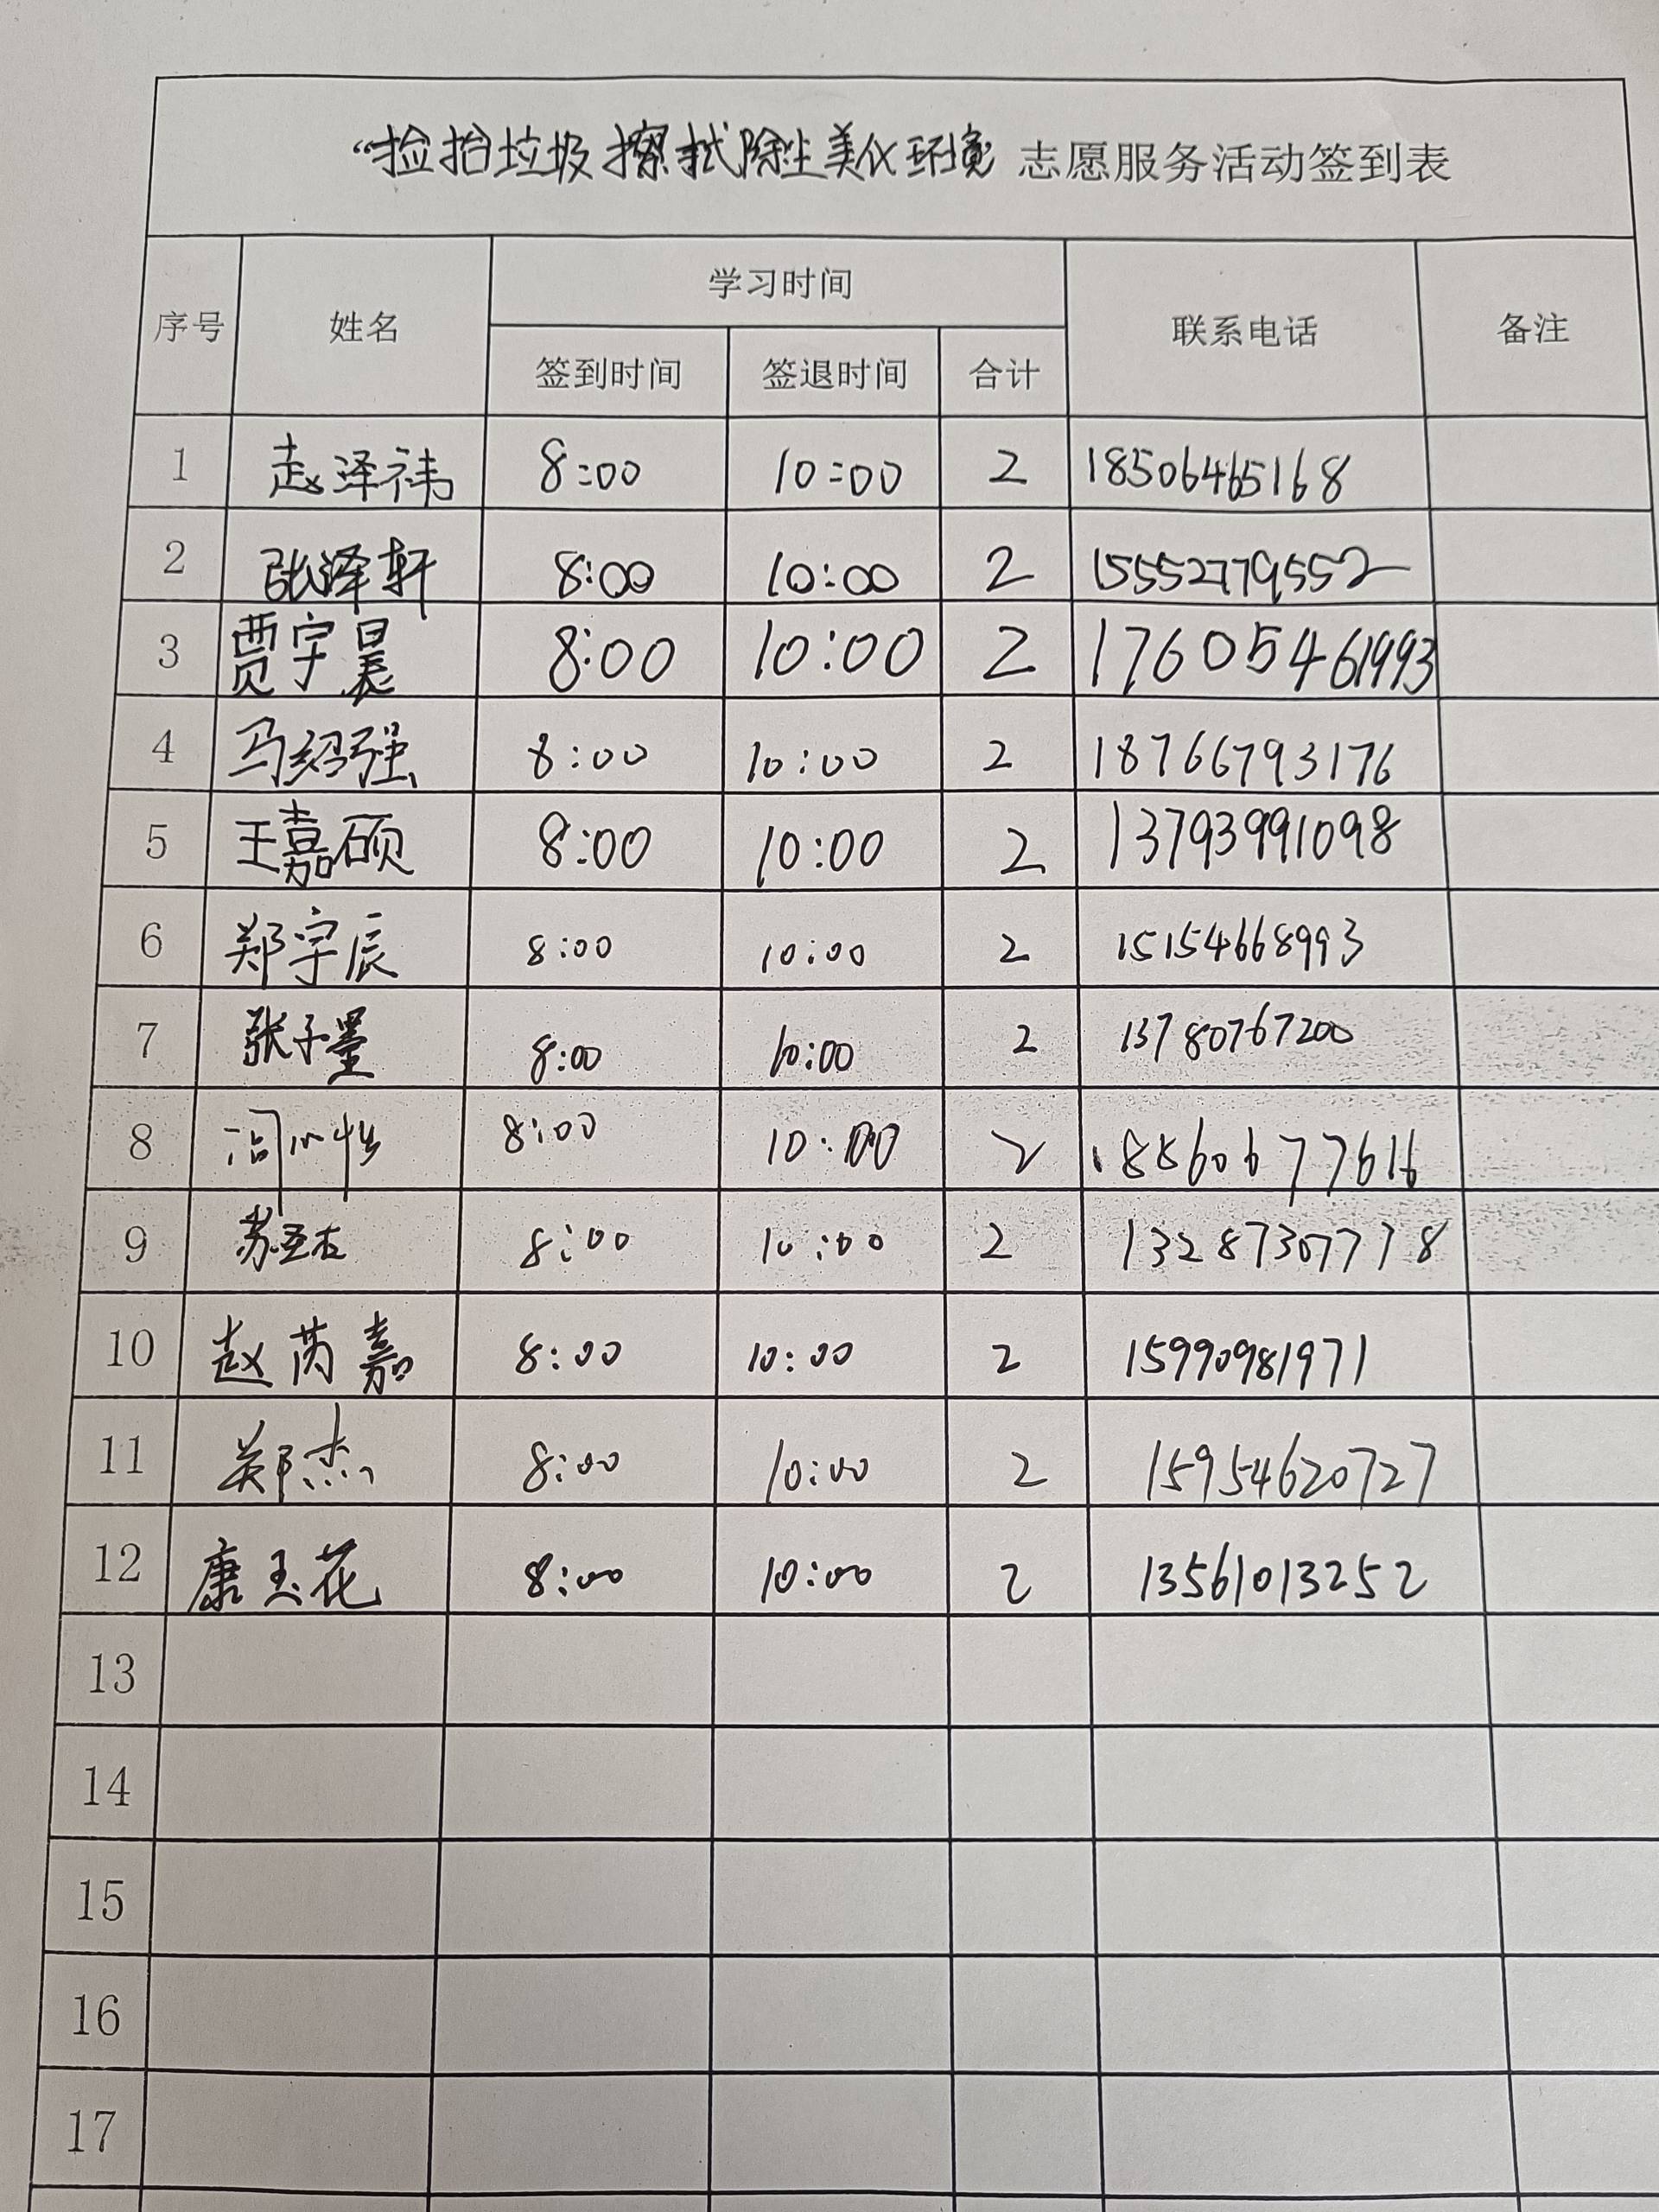 “捡拾垃圾 擦拭除尘 美化环境 志愿服务活动签到表
序号 姓名 学习时间 联系电话 备注
签到时间 签退时间 合计
1 赵泽祎 8:00 10:00 2 18506465168
2 张泽轩 8:00 10:00 2 15552779552
3 贾宇晨 8:00 10:00 2 17605461993
4 马绍强 8:00 10:00 2 18766793176
5 王嘉硕 8:00 10:00 2 13793991098
6 郑宇辰 8:00 10:00 2 15154668993
7 张子墨 8:00 10:00 2 13780767200
8 8:00 10:00 2 18860677616
9 苏 8:00 10:00 2 13287307778
10 赵芮嘉 8:00 10:00 2 15990981971
11 郑杰 8:00 10:00 2 15954620727
12 康玉花 8:00 10:00 2 13561013252
13
14
15
16
17